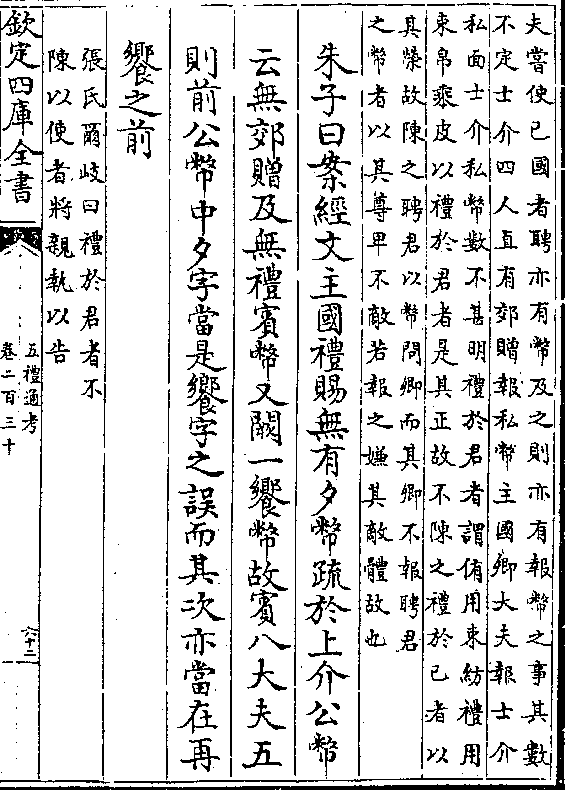 夫嘗使已國者聘亦有幣及之則亦有報幣之事其數
不定士介四人直有郊贈報私幣主國卿大夫報士介
私面士介私幣數不甚明禮於君者謂侑用束紡禮用
束帛乘皮以禮於君者是其正故不陳之禮於已者以
其榮故陳之聘君以幣問卿而其卿不報聘君
之幣者以其尊卑不敵若報之嫌其敵體故也
朱子曰案經文主國禮賜無有夕幣疏於上介公幣
云無郊贈及無禮賓幣又闕一饗幣故賓八大夫五
則前公幣中夕字當是饗字之誤而其次亦當在再
饗之前
張氏爾岐曰禮於君者不
陳以使者將親執以告
欽定四庫全書
五禮通考
卷二百三十
六十二